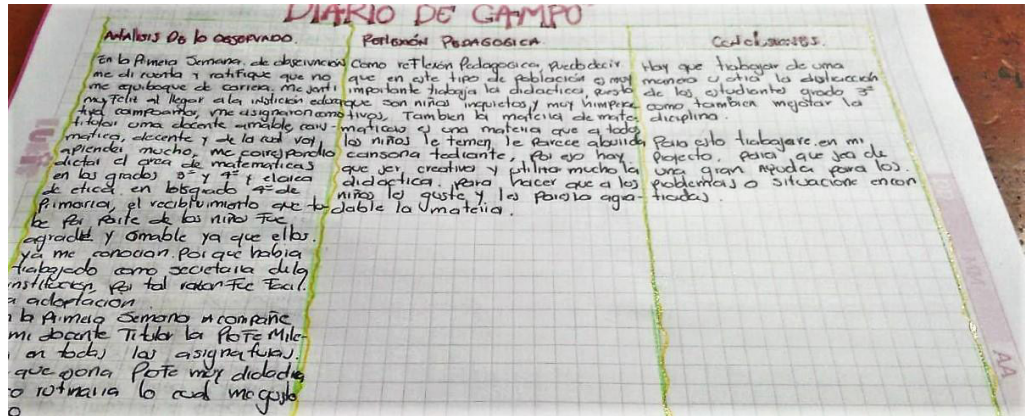 DIARIO DE CAMPO
Análisis De lo observado.
En la Primera Semana. de observación
me di cuenta y ratifique que no
me equiboque de carrera. me senti
muy Feliz al llegar a la institición educa
tiva campoamor, me asignaron como
titular una docente amable caris-
matica, decente y de la cual voy
aprender mucho, me correspondio
dictar el area de matematicas
en los grados 3º y 4º y el area
de etica en los grado 4º de
Primaria, el recibiumiento que tu-
be por parte de los niños Fue
agradable y amable ya que ellos.
ya me conocian. Por que habia
trabajado como secretaria de la
institución, Por tal razon Fue Facil.
a adaptacion.
la Primera Semana acompañe
mi docente Titular la ProFe Mile-
en todas las asignaturas.
que es una ProFe muy didactica
o rutinaria lo cual me gusto
Reflexión Pedagogica
Como reflexion Pedagogica, puedo decir
que en este tipo de población es muy
importante trabaja la didactica, puesto
que son niños inquietos y muy himpera
tivos, Tambien la materia de mate-
maticas es una materia que a todos
los niños le temen, le parece aburida,
cansona tediante, Por eso hay
que ser, creativo y utiliza mucho la
didactica, para hacer que a los
niños le guste y les paresca agra-
dable la materia.
Conclusiones.
Hay que trabajar de una
manera u otra la distracción
de los estudiantes grado 3º
como tambien mejorar la
diciplina.
Para esto trabajare, en mi
Projecto, para que sea de
una gran ayuda para los.
problemas o situacione encon
tradas.